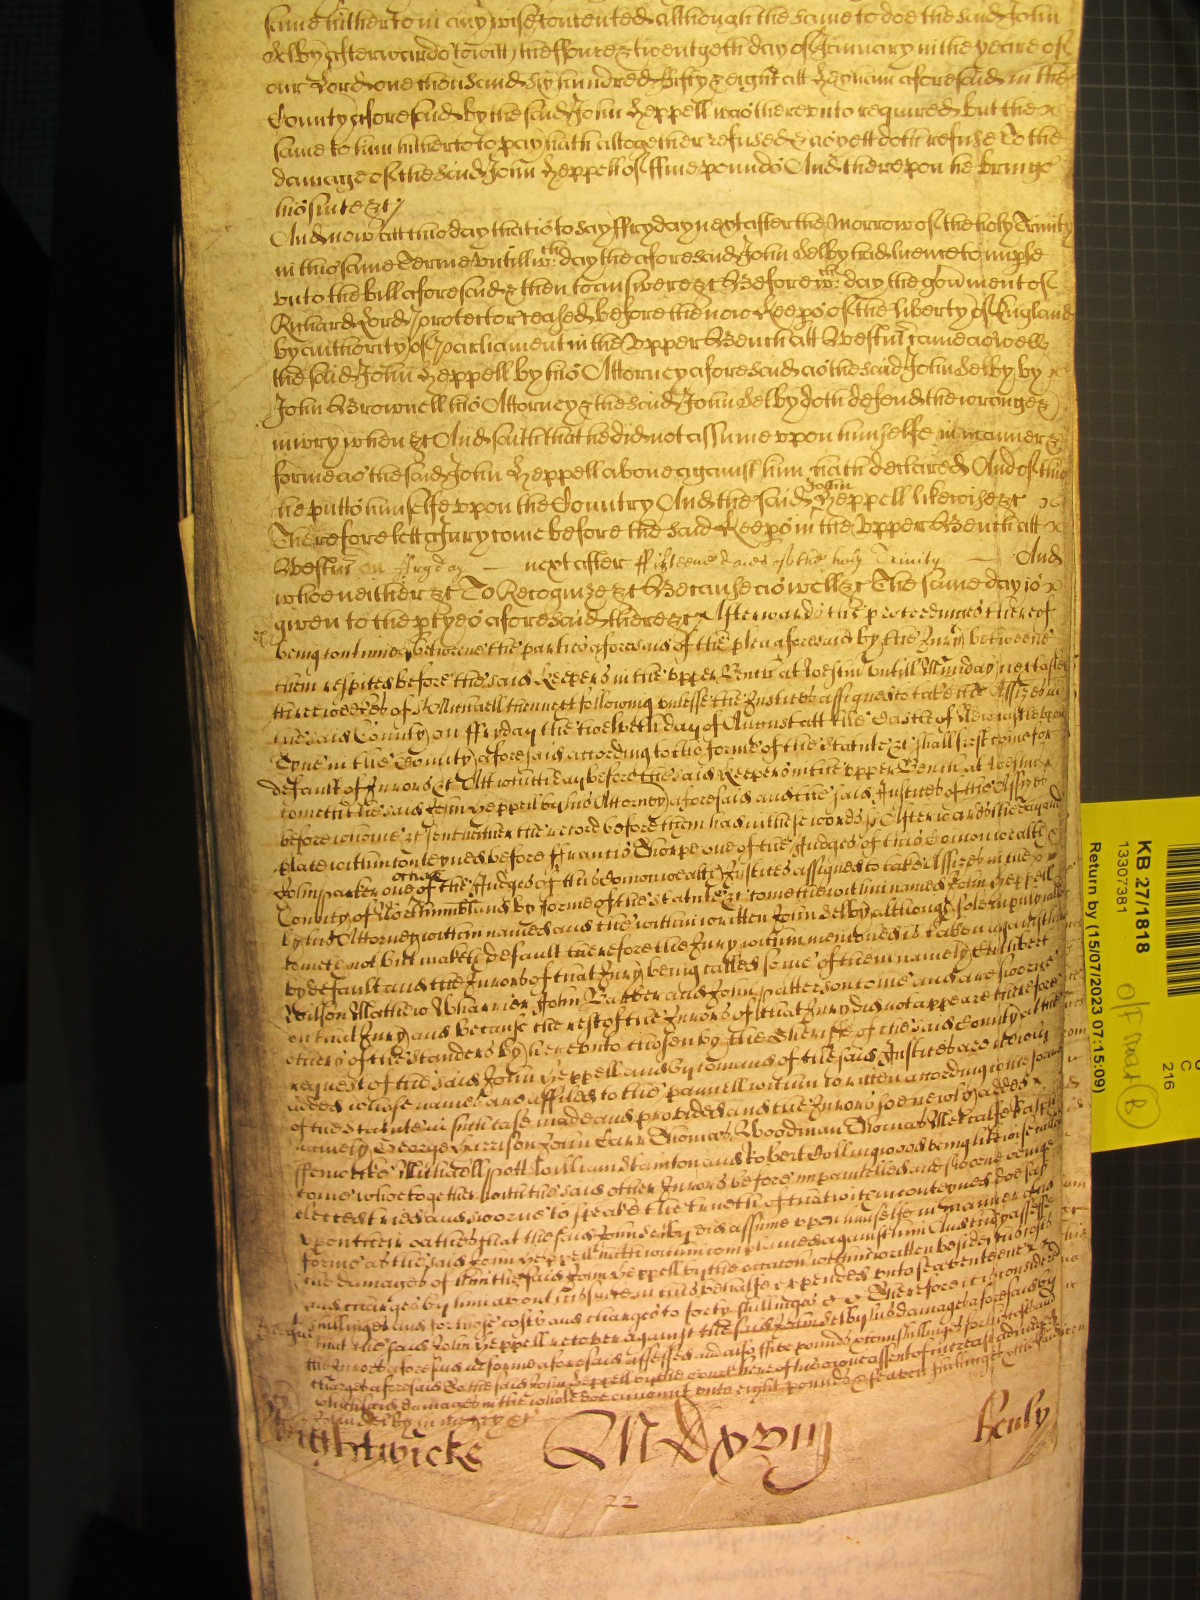 same hitherto in any wise contented although the same to doe the said John
Selby afterwards (towitt) the ffoure & twentyeth day of January in the yeare of
our Lord one thousand six hundred fifty & eight att Hexham aforesaid in the
County aforesaid by the said John Heppell was therevnto required but the
same to him hitherto to pay hath altogether refused & as yett doth refuse To the
damage of the said John Heppell of ffive pounds And therevpon he bringe
his suite &c
And now att this day that is to say ffryday next after the Morrow of the holy Trinity
in this same Terme vntill wch day the aforesaid John Selby had licence to imple
vnto the bill aforesaid & then to answere &c Before wch day the govment of
Richard Lord protector ceased before the now Keeps of the liberty of England
by authority of parliament in the vpper Bench att Westm came aswell
the said John Heppell by his Attorney aforesaid as the said John Selby by
John Brownell his Attorney & the said John Selby doth defend the wronge &
iniury when &c And saith that he did not assume vpon himselfe in manner &
forme as the said John Heppell above against him hath declared And of this
he putts himselfe vpon the Country And the said John Heppell likewise &c
Therefore lett a Jury come before the said Keeps in the vpper Bench att
Westm on next after ffifteene daies of the holy Trinity And
whoe neither &c To Recognize &c Because aswell &c The same day is
given to the ptyes aforesaid there &c Afterwards the proceedinges thereof
being continued betweene the parties aforesaid of the plea aforesaid by the Jury betweene
them respited before the said Keepers in the vpper Bench at Westm vntill Munday next after
three weekes of St Michaell then next following vnlesse the Justices assigned to take the Assizes in
the said County on ffryday the twelveth day of August att the Castle of Newcastle vpon
Tyne in the County aforesaid according to the forme of the statute &c shall first come for
default of Jurors &c Att which day before the said Keepers in the vpper Bench at Westm
cometh the said John Heppell by his Attorney aforesaid and the said Justices of the Assizes
before whome &c sent hither the record before them had in these words ss Afterwards the day and
place within conteyned before ffrancis Thorpe one of the Judges of this Comonwealth &
John parker one other of the Judges of this Comonwealth Justices assigned to take Assizes in the
County of Northumbland by forme of the statute &c cometh the within named John Heppell
by his Attorney within named and the within written John Selby although solemnly
cometh not but maketh default therefore the Jury within mencioned is taken against him
by default and the Jurors of that Jury being called some of them namely Cuthbert
Wilson Mathew Wharrier John Barber and John patterson come and are sworne
on that Jury and because the rest of the Jurors of that Jury did not appeare therefore
others of the standers by herevnto chosen by the Sheriffe of the said County at the
request of the said John Heppell and by comand of the said Justices are
added whose names are affiled to the pannell within written according to the forme
of the statute in such case made and provided and the Jurors soe newly added
namely George Harrison John Carr Thomas Woodman Thomas Metcalfe
ffenwicke Michaell pott William Stainton and Robert Collingwood being likewise called
come whoe together with the said other Jurors before impannelled and sworne being
elected tried and sworne to speake the truth of that within conteyned doe say
vpon their oathes that the said John Selby did assume vpon himselfe in manner and
forme as the said John Heppell hath within complained against him And they assesse
the damages of him the said John Heppell by the occasion within written besides his costs
and charges by him about his suite in this behalfe expended vnto seaventeene
shillinges and for those costs and charges to forty shillinges &c Therefore it is considered
that the said John Heppell recover against the said John Selby his damages aforesaid by
the Jurors aforesaid in forme aforesaid assessed and also ffive pounds shillinges for his costs and
charges aforesaid to the said John Heppell by the court here of his owne assent of increase adiudged
which said damages in the whole doe amount vnto eight pounds &
John Selby in mercy &c
ightwicke MDxviij
22
KB 27/1818
13307381
Return by (15/07/2023 07:15:09)
216